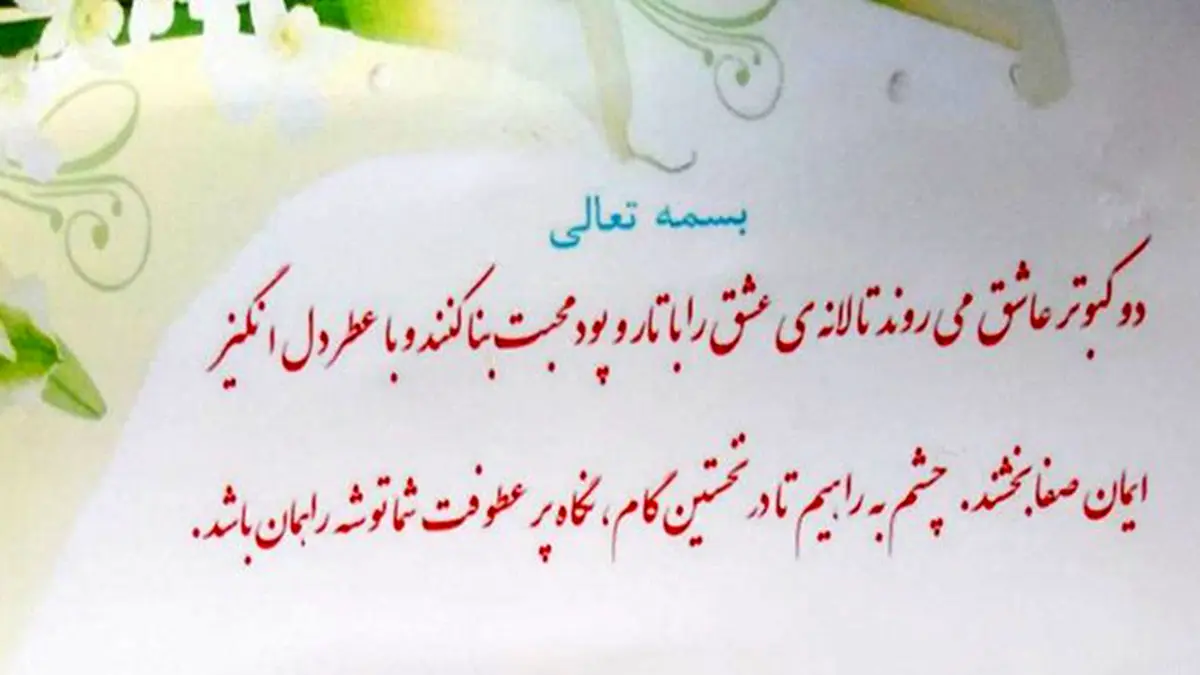 بسمه تعالی
دو کبوتر عاشق می روند تا لانه ی عشق را با تار و پود محبت بنا کنند و با عطر دل انگیز
ایمان صفا بخشند. چشم به راهیم تا در نخستین گام، نگاه پر عطوفت شما توشه راهمان باشد.